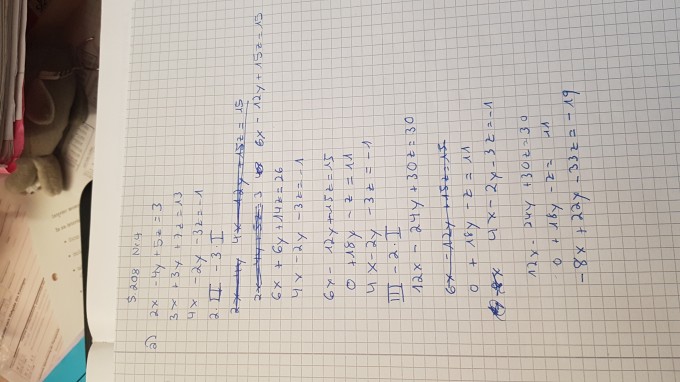 S.208 Nr.4
a) 2x -4y +5z = 3
3x +3y +7z = 13
4x -2y -3z = -1
2·II -3·I
6x - 12y + 15z = 15
6x + 6y + 14z = 26
4x -2y -3z = -1
6x - 12y + 15z = 15
0 + 18y - z = 11
4x -2y -3z = -1
III -2·I
12x - 24y + 30z = 30
6x - 12y + 15z = 15
0 + 18y - z = 11
4x -2y -3z = -1
12x - 24y + 30z = 30
0 + 18y - z = 11
-8x + 22y - 33z = -19